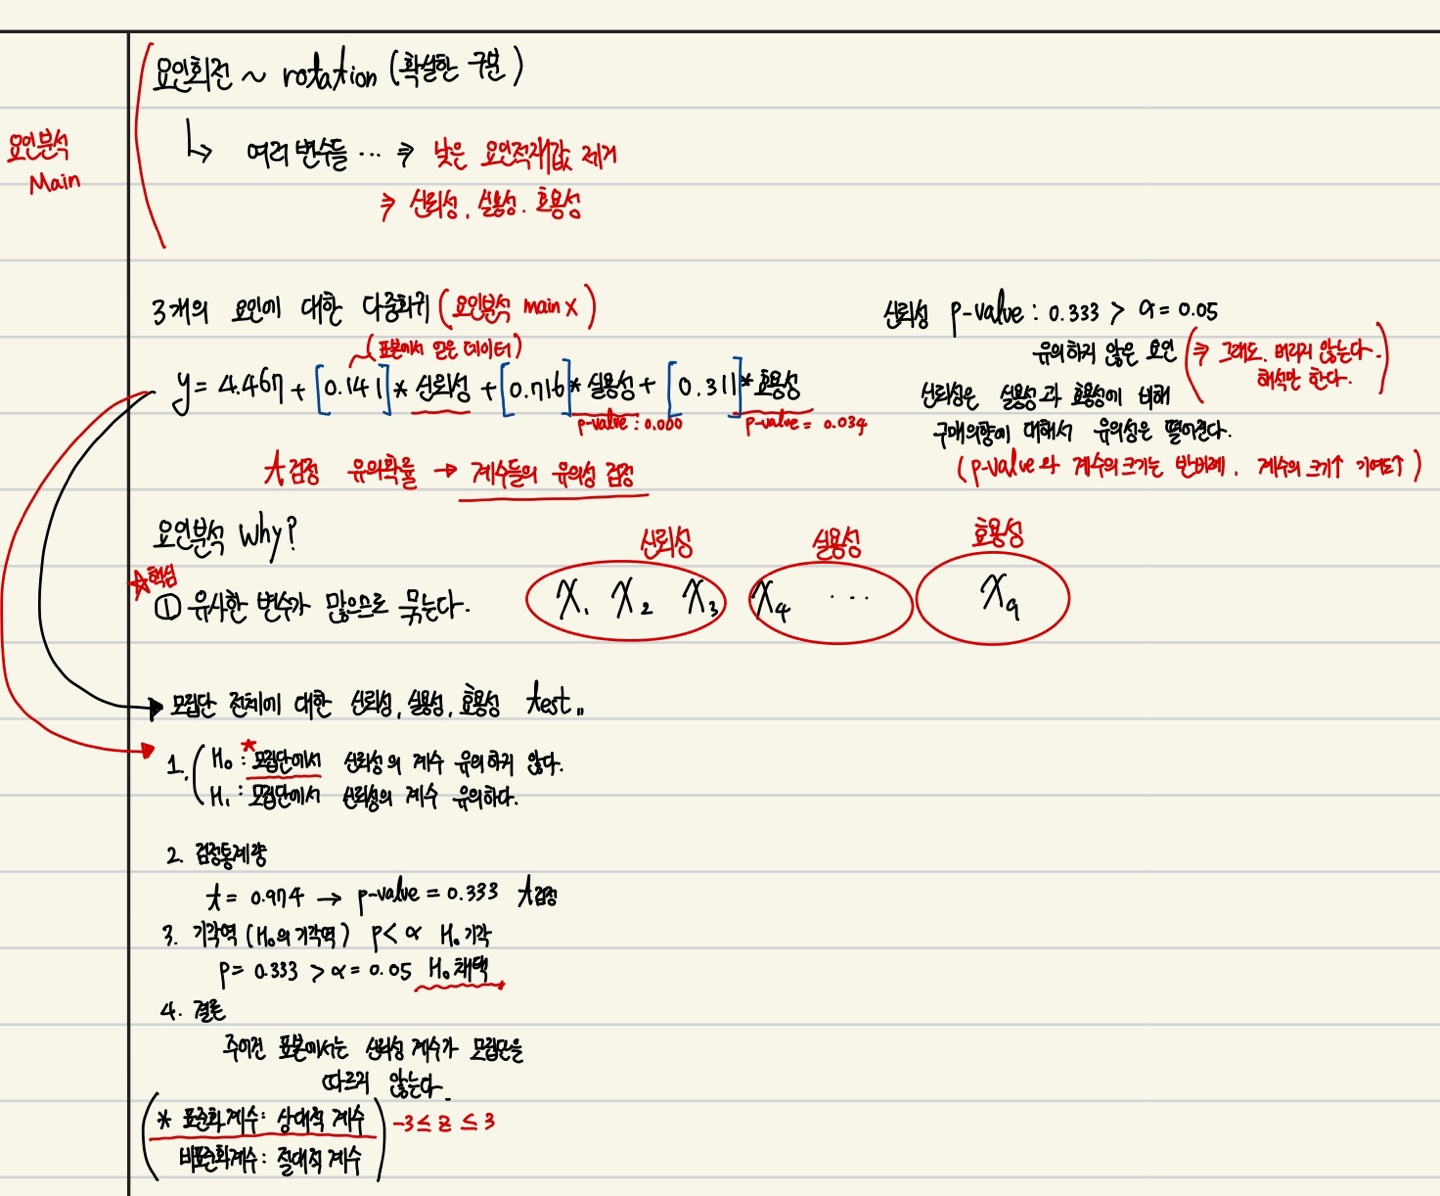 요인회전 ~ rotation (확실한 구분)
요인분석
Main
↳ 여러 변수들 ··· ⇒ 낮은 요인적재값 제거
⇒ 신뢰성, 실용성. 효용성
3개의 요인에 대한 다중회귀 (요인분석 main X)
(표본에서 얻은 데이터)
y = 4.467 + [0.141] * 신뢰성 + [0.716] * 실용성 + [0.311] * 효용성
p-value : 0.000
p-value = 0.034
t검정 유의확률 → 계수들의 유의성 검정
신뢰성 p-value : 0.333 > α = 0.05
유의하지 않은 요인 (⇒ 그래도. 버리지 않는다.
해석만 한다.)
신뢰성은 실용성과 효용성에 비해
구매의향에 대해서 유의성은 떨어진다.
(p-value와 계수의 크기는 반비례, 계수의 크기↑ 기여도↑)
요인분석 Why?
☆핵심
① 유사한 변수가 많으므로 묶는다.
신뢰성 실용성 효용성
X₁ X₂ X₃ X₄ ··· X₉
모집단 전체에 대한 신뢰성, 실용성, 효용성 test.,
1. H₀ : *모집단에서 신뢰성의 계수 유의하지 않다.
H₁ : 모집단에서 신뢰성의 계수 유의하다.
2. 검정통계량
t = 0.974 → p-value = 0.333 t검정
3. 기각역 (H₀의 기각역) p < α H₀ 기각
p = 0.333 > α = 0.05 H₀ 채택
4. 결론
주어진 표본에서는 신뢰성 계수가 모집단을
따르지 않는다.
(* 표준화계수 : 상대적 계수 -3 ≤ z ≤ 3
비표준화계수 : 절대적 계수)